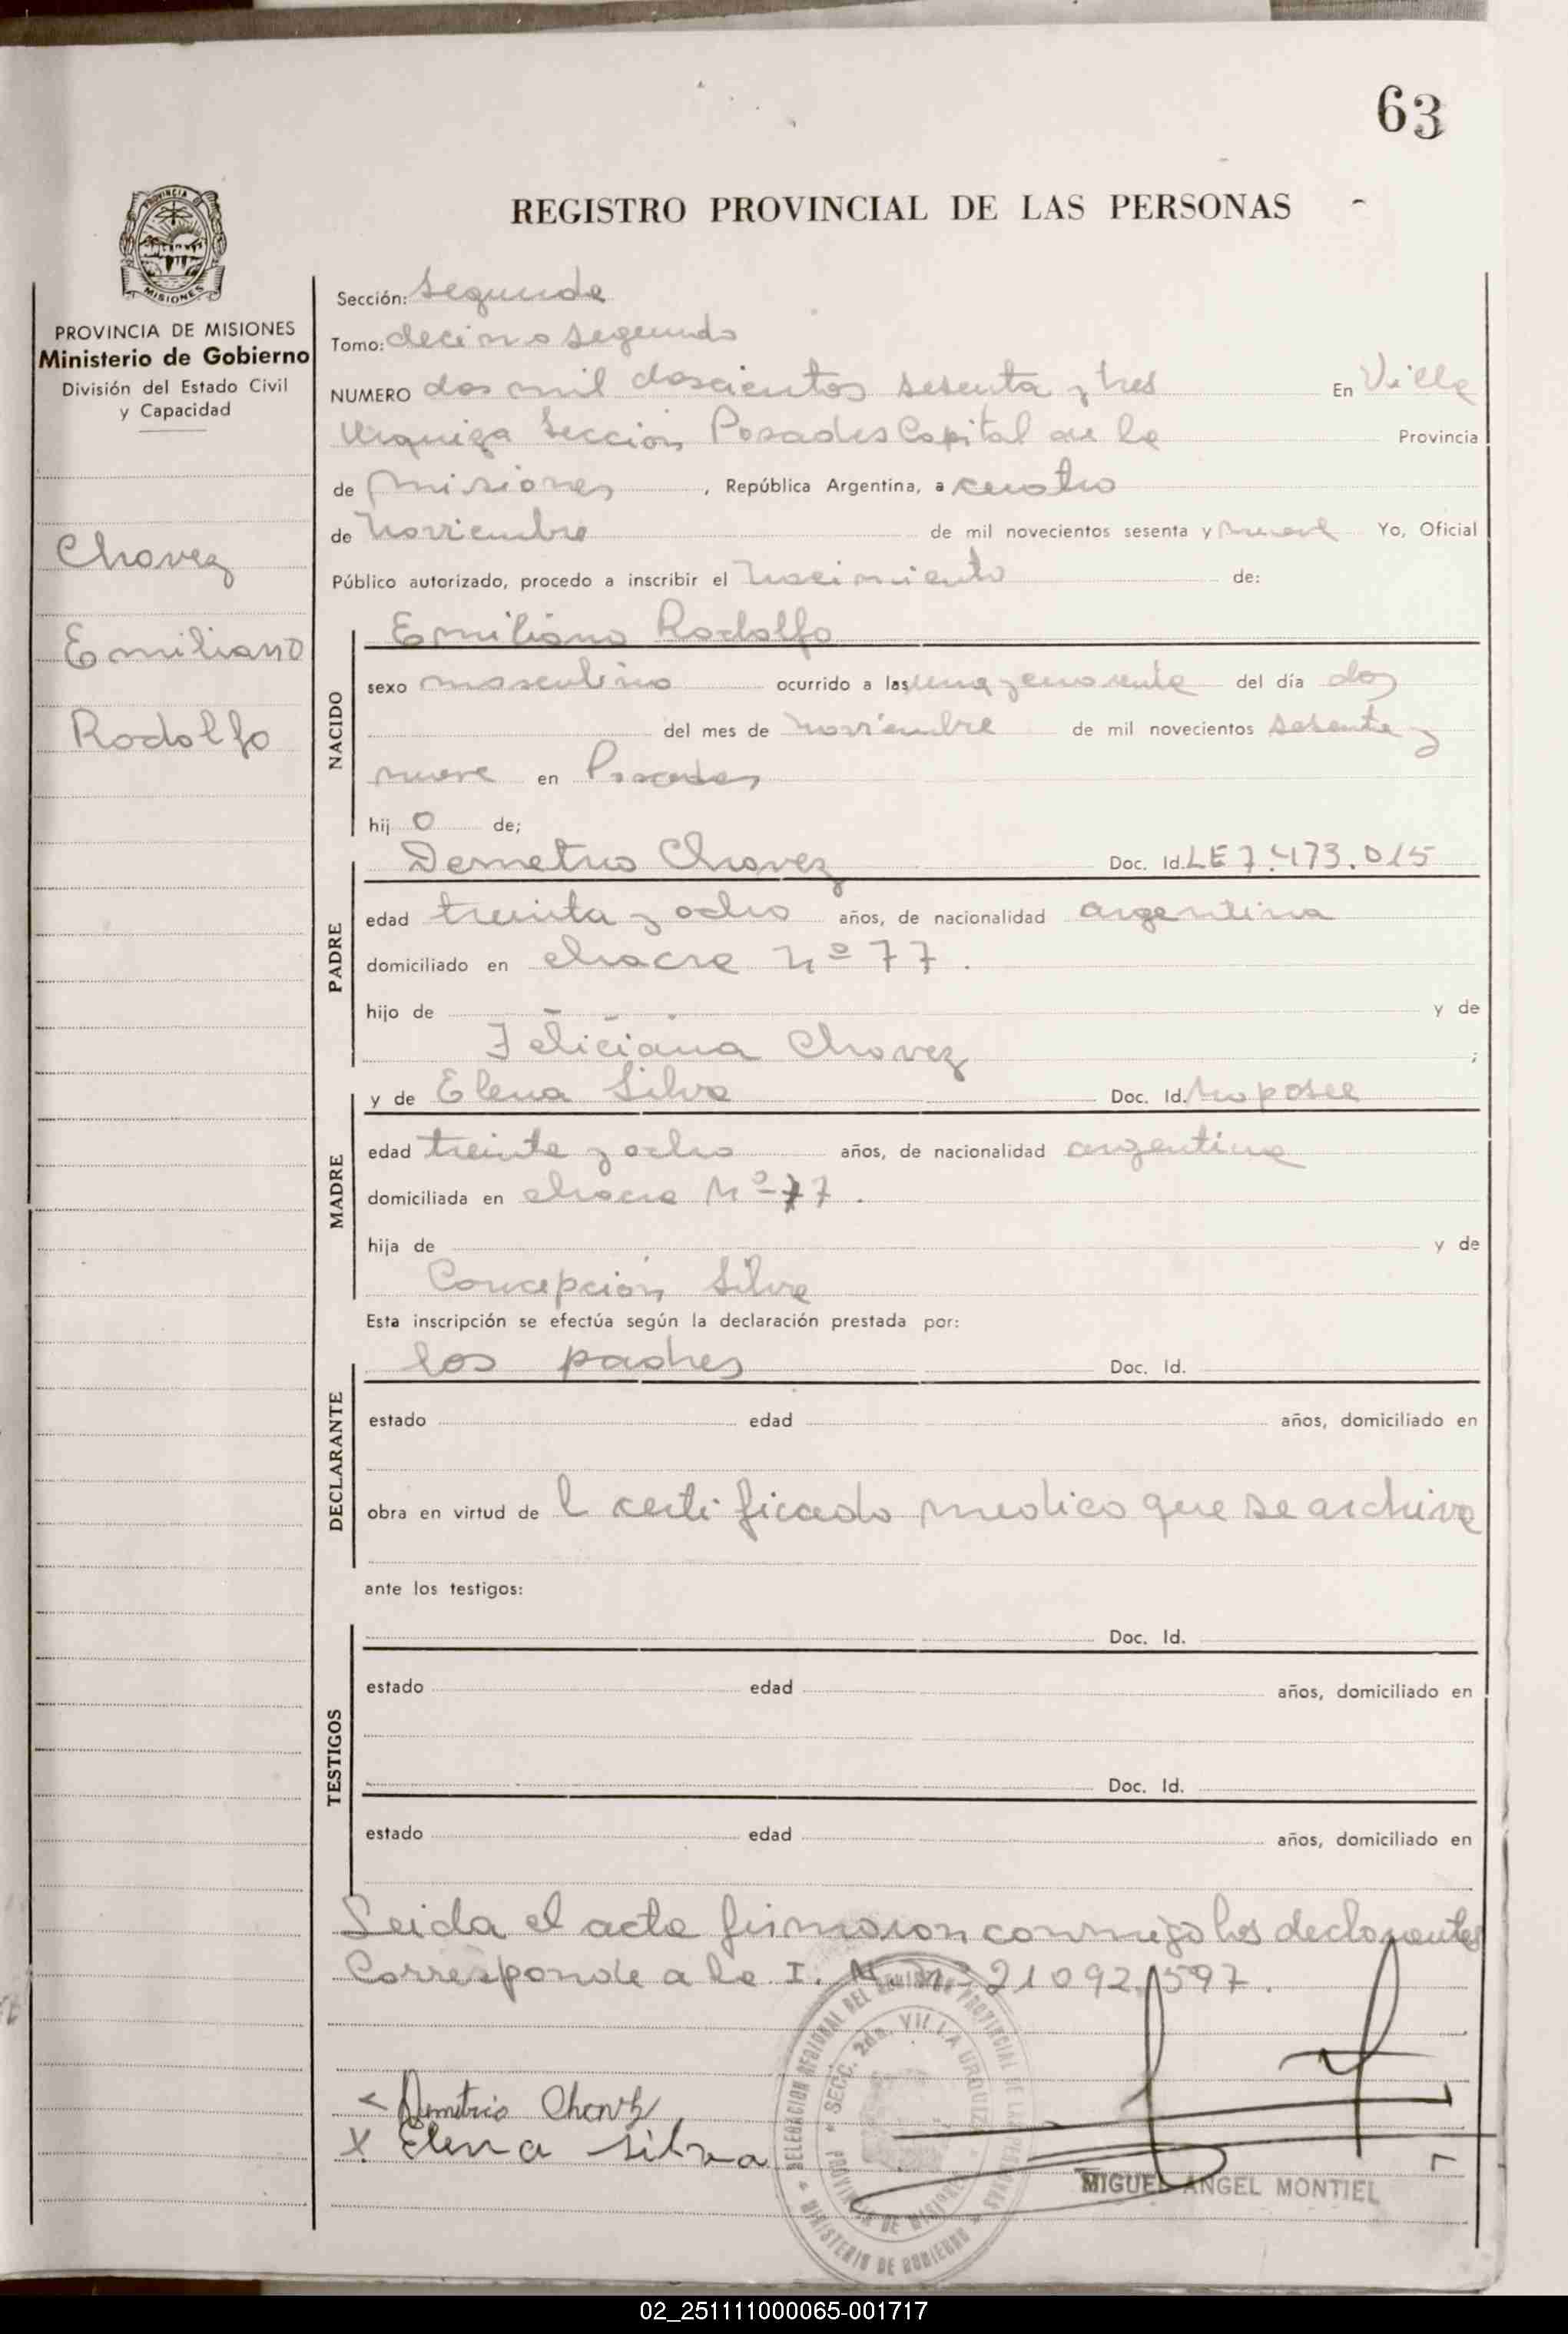 63
REGISTRO PROVINCIAL DE LAS PERSONAS
PROVINCIA
MISIONES
PROVINCIA DE MISIONES
Ministerio de Gobierno
División del Estado Civil
y Capacidad
Chavez
Emiliano
Rodolfo
Sección: Segunda
Tomo: decimo segundo
NUMERO dos mil doscientos sesenta y tres En Villa
Urquiza Sección Posadas Capital de la Provincia
de misiones, República Argentina, a cuatro
de noviembre de mil novecientos sesenta y nueve Yo, Oficial
Público autorizado, procedo a inscribir el nacimiento de:
NACIDO
Emiliano Rodolfo
sexo masculino ocurrido a las una y cuarenta del día dos
del mes de noviembre de mil novecientos sesenta y
nueve en Posadas
hij o de;
PADRE
Demetrio Chavez Doc. Id. LE 7.473.015
edad treinta y ocho años, de nacionalidad argentina
domiciliado en chacra Nº 77.
hijo de y de
Feliciana Chavez ;
MADRE
y de Elena Silva Doc. Id. no posee
edad treinta y ocho años, de nacionalidad argentina
domiciliada en chacra Nº 77.
hija de y de
Concepción Silva
Esta inscripción se efectúa según la declaración prestada por:
DECLARANTE
los padres Doc. Id.
estado edad años, domiciliado en
obra en virtud de l certificado medico que se archiva
ante los testigos:
TESTIGOS
Doc. Id.
estado edad años, domiciliado en
Doc. Id.
estado edad años, domiciliado en
Leida el acta firmaron conmigo los declarantes
Corresponde a la I. M. Nº 21092.597.
DELEGACION REGIONAL DEL REGISTRO PROVINCIAL DE LAS PERSONAS
MINISTERIO DE GOBIERNO
SECC. 2da. VILLA URQUIZA
PROVINCIA DE MISIONES
Demetrio Chavez
X Elena Silva
MIGUEL ANGEL MONTIEL
02_251111000065-001717